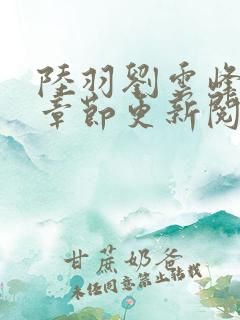 陸羽劉雲峰
章節更新閱
甘蔗奶爸
未经同意禁止转载